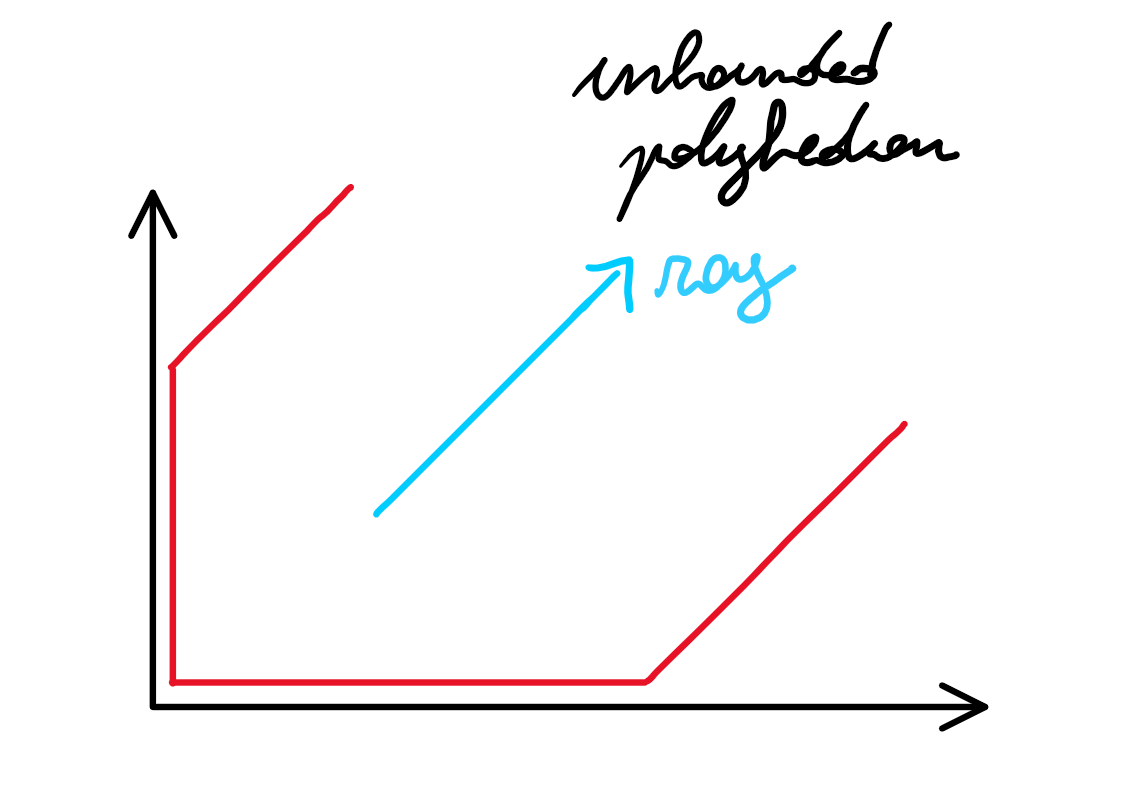 unbounded
polyhedron
ray